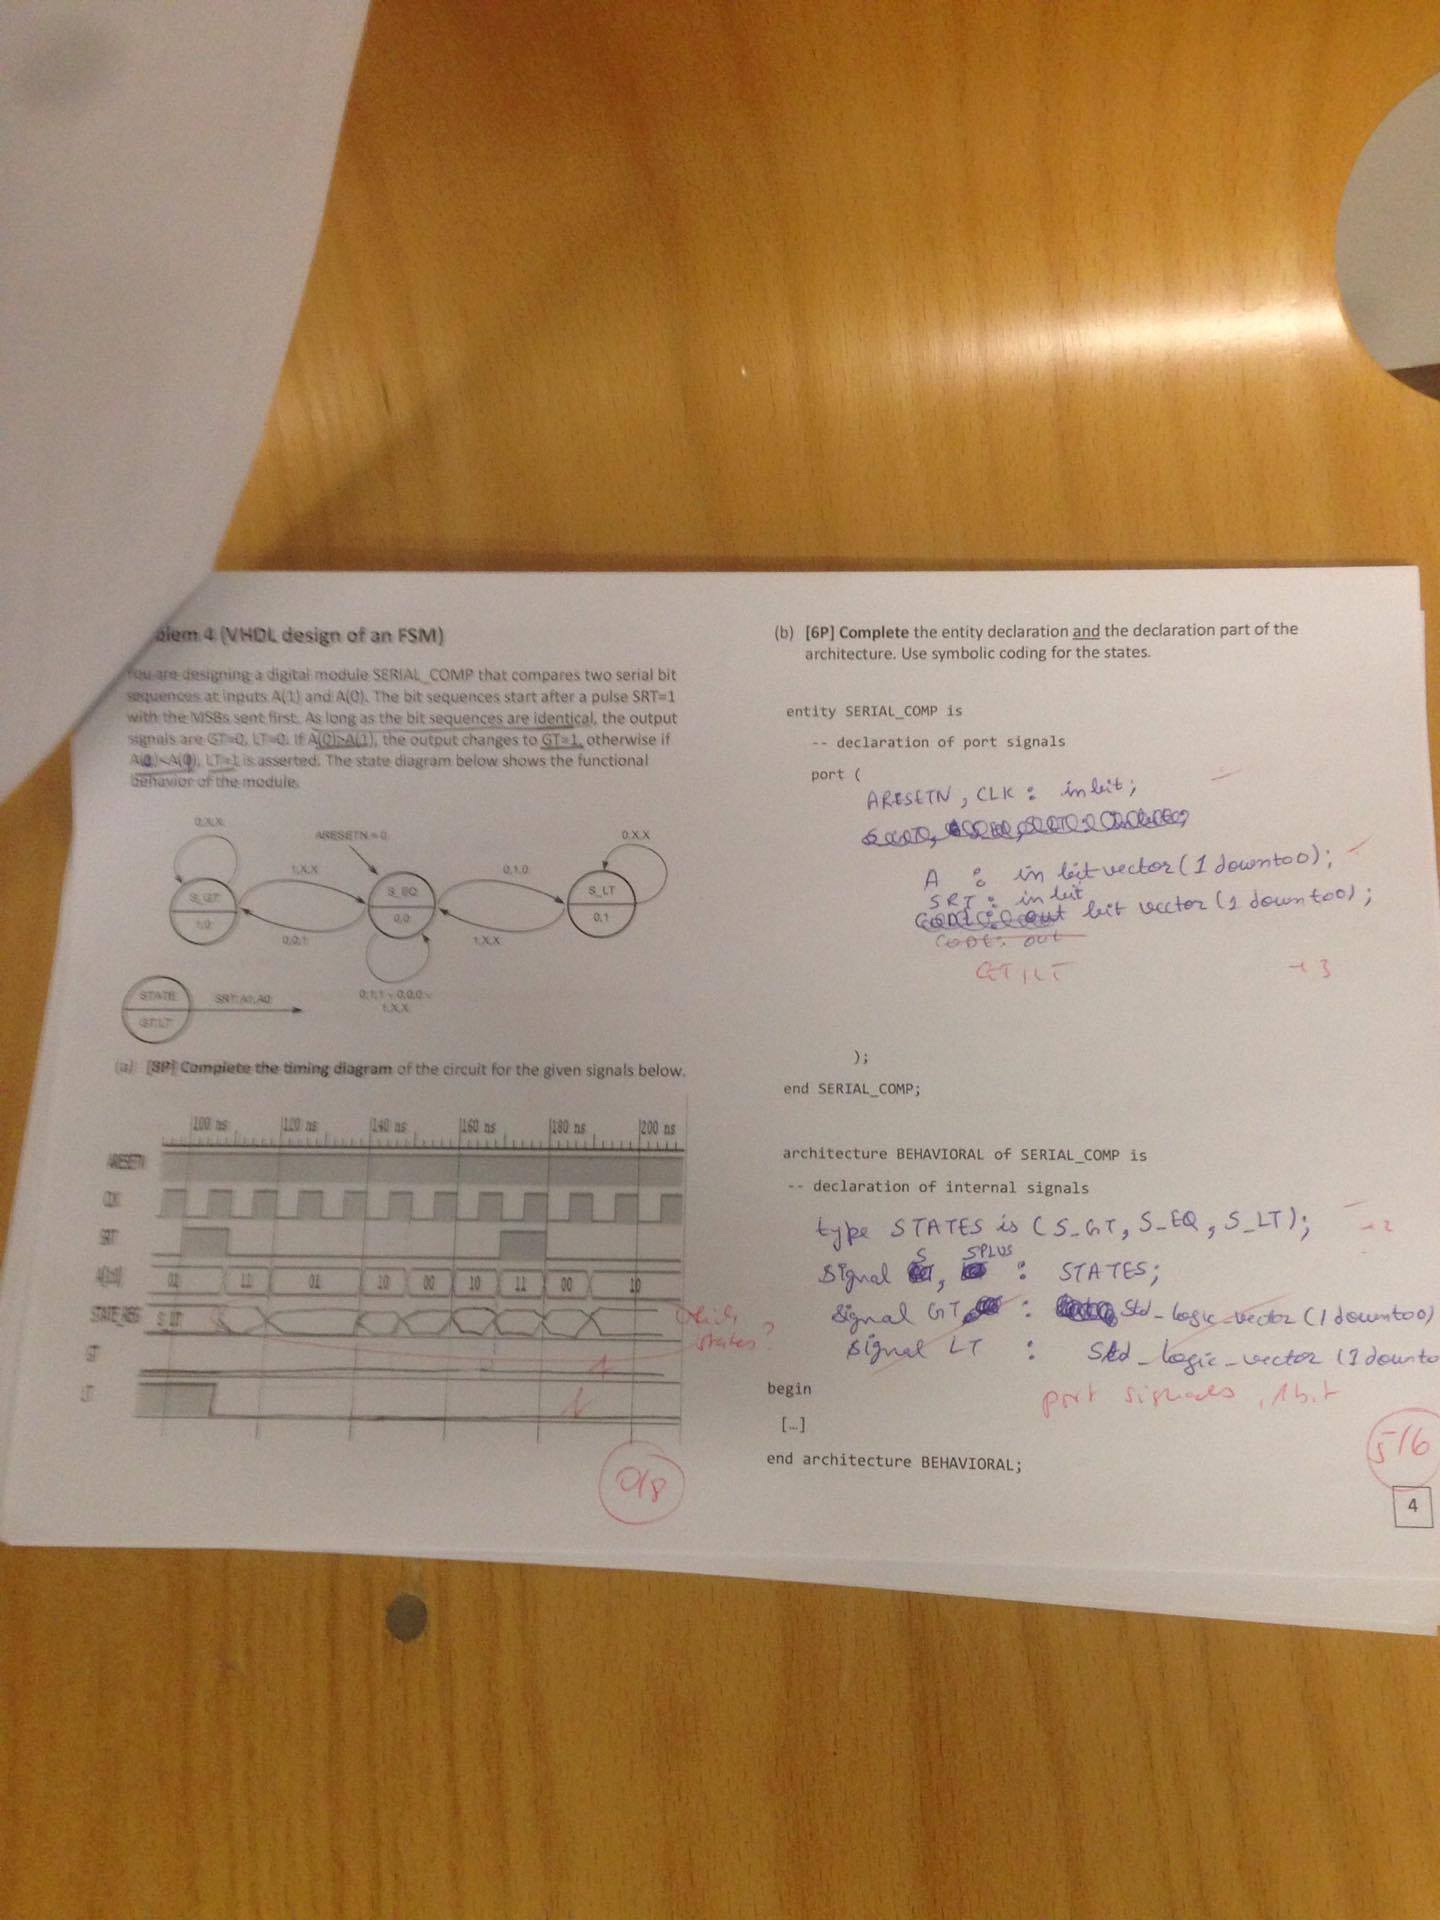 blem 4 (VHDL design of an FSM)
You are designing a digital module SERIAL_COMP that compares two serial bit
sequences at inputs A(1) and A(0). The bit sequences start after a pulse SRT=1
with the MSBs sent first. As long as the bit sequences are identical, the output
signals are GT=0, LT=0. If A(0)>A(1), the output changes to GT=1, otherwise if
LT=1 is asserted. The state diagram below shows the functional
behavior of the module.
0,X,X
ARESETN = 0
0,X,X
1,X,X
0,1,0
S_GT
S_EQ
S_LT
1,0
0,0
0,1
0,0,1
1,X,X
STATE
SRT,A1,A0
0,1,1 v 0,0,0 v
1,X,X
GT,LT
(a) [8P] Complete the timing diagram of the circuit for the given signals below.
100 ns 120 ns 140 ns 160 ns 180 ns 200 ns
ARESETN
CLK
SRT
A[1:0] 01 10 00 10 11 00 10
STATE_REG S_LT
which
states?
GT
LT
0/8
(b) [6P] Complete the entity declaration and the declaration part of the
architecture. Use symbolic coding for the states.
entity SERIAL_COMP is
-- declaration of port signals
port (
ARESETN, CLK : in bit;
A : in bit vector (1 downto 0);
SRT : in bit
bit vector (1 downto 0);
CODE: out
GT, LT
+3
);
end SERIAL_COMP;
architecture BEHAVIORAL of SERIAL_COMP is
-- declaration of internal signals
type STATES is (S_GT, S_EQ, S_LT);
S SPLUS
Signal , : STATES;
Signal GT : Std_logic_vector (1 downto 0)
Signal LT : Std_logic_vector (1 downto
port signals, 1 bit
begin
[…]
end architecture BEHAVIORAL;
5/6
4